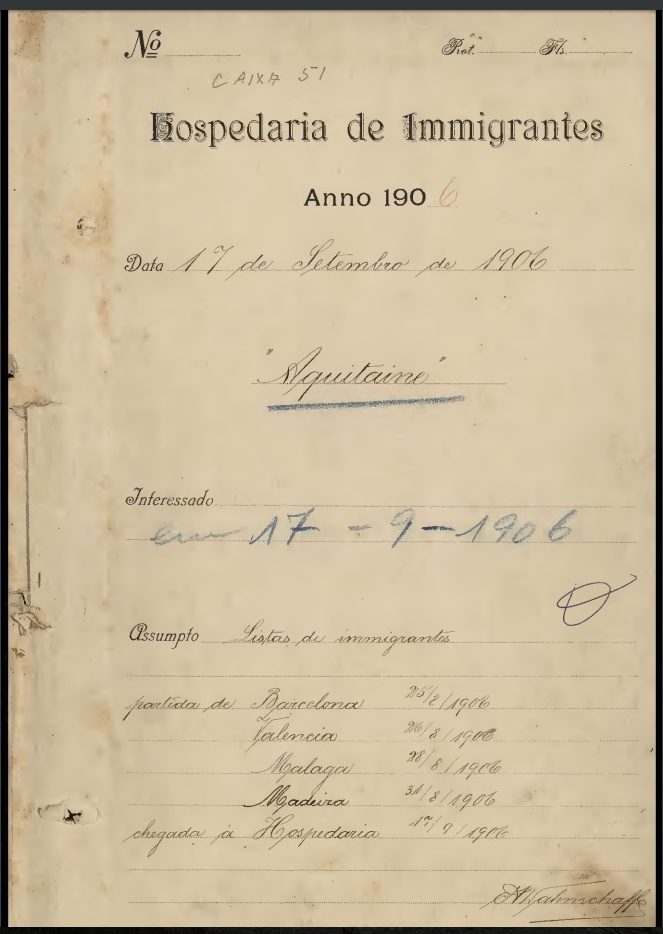 Nº Prot. Fls.
CAIXA 51
Hospedaria de Immigrantes
Anno 1906
Data 17 de Setembro de 1906
"Aquitaine"
Interessado
em 17 - 9 - 1906
Assumpto Listas de immigrantes
partida de Barcelona 25/8/1906
Valencia 26/8/1906
Malaga 28/8/1906
Madeira 31/8/1906
chegada à Hospedaria 17/9/1906